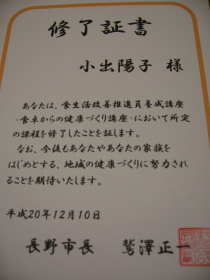 修了証書
小出陽子 様
あなたは、食生活改善推進員養成講座
-食卓からの健康づくり講座-において所定
の課程を修了したことを証します。
なお、今後もあなたやあなたの家族を
はじめとする、地域の健康づくりに努力され
ることを期待いたします。
平成20年12月10日
長野市長 鷲澤正一